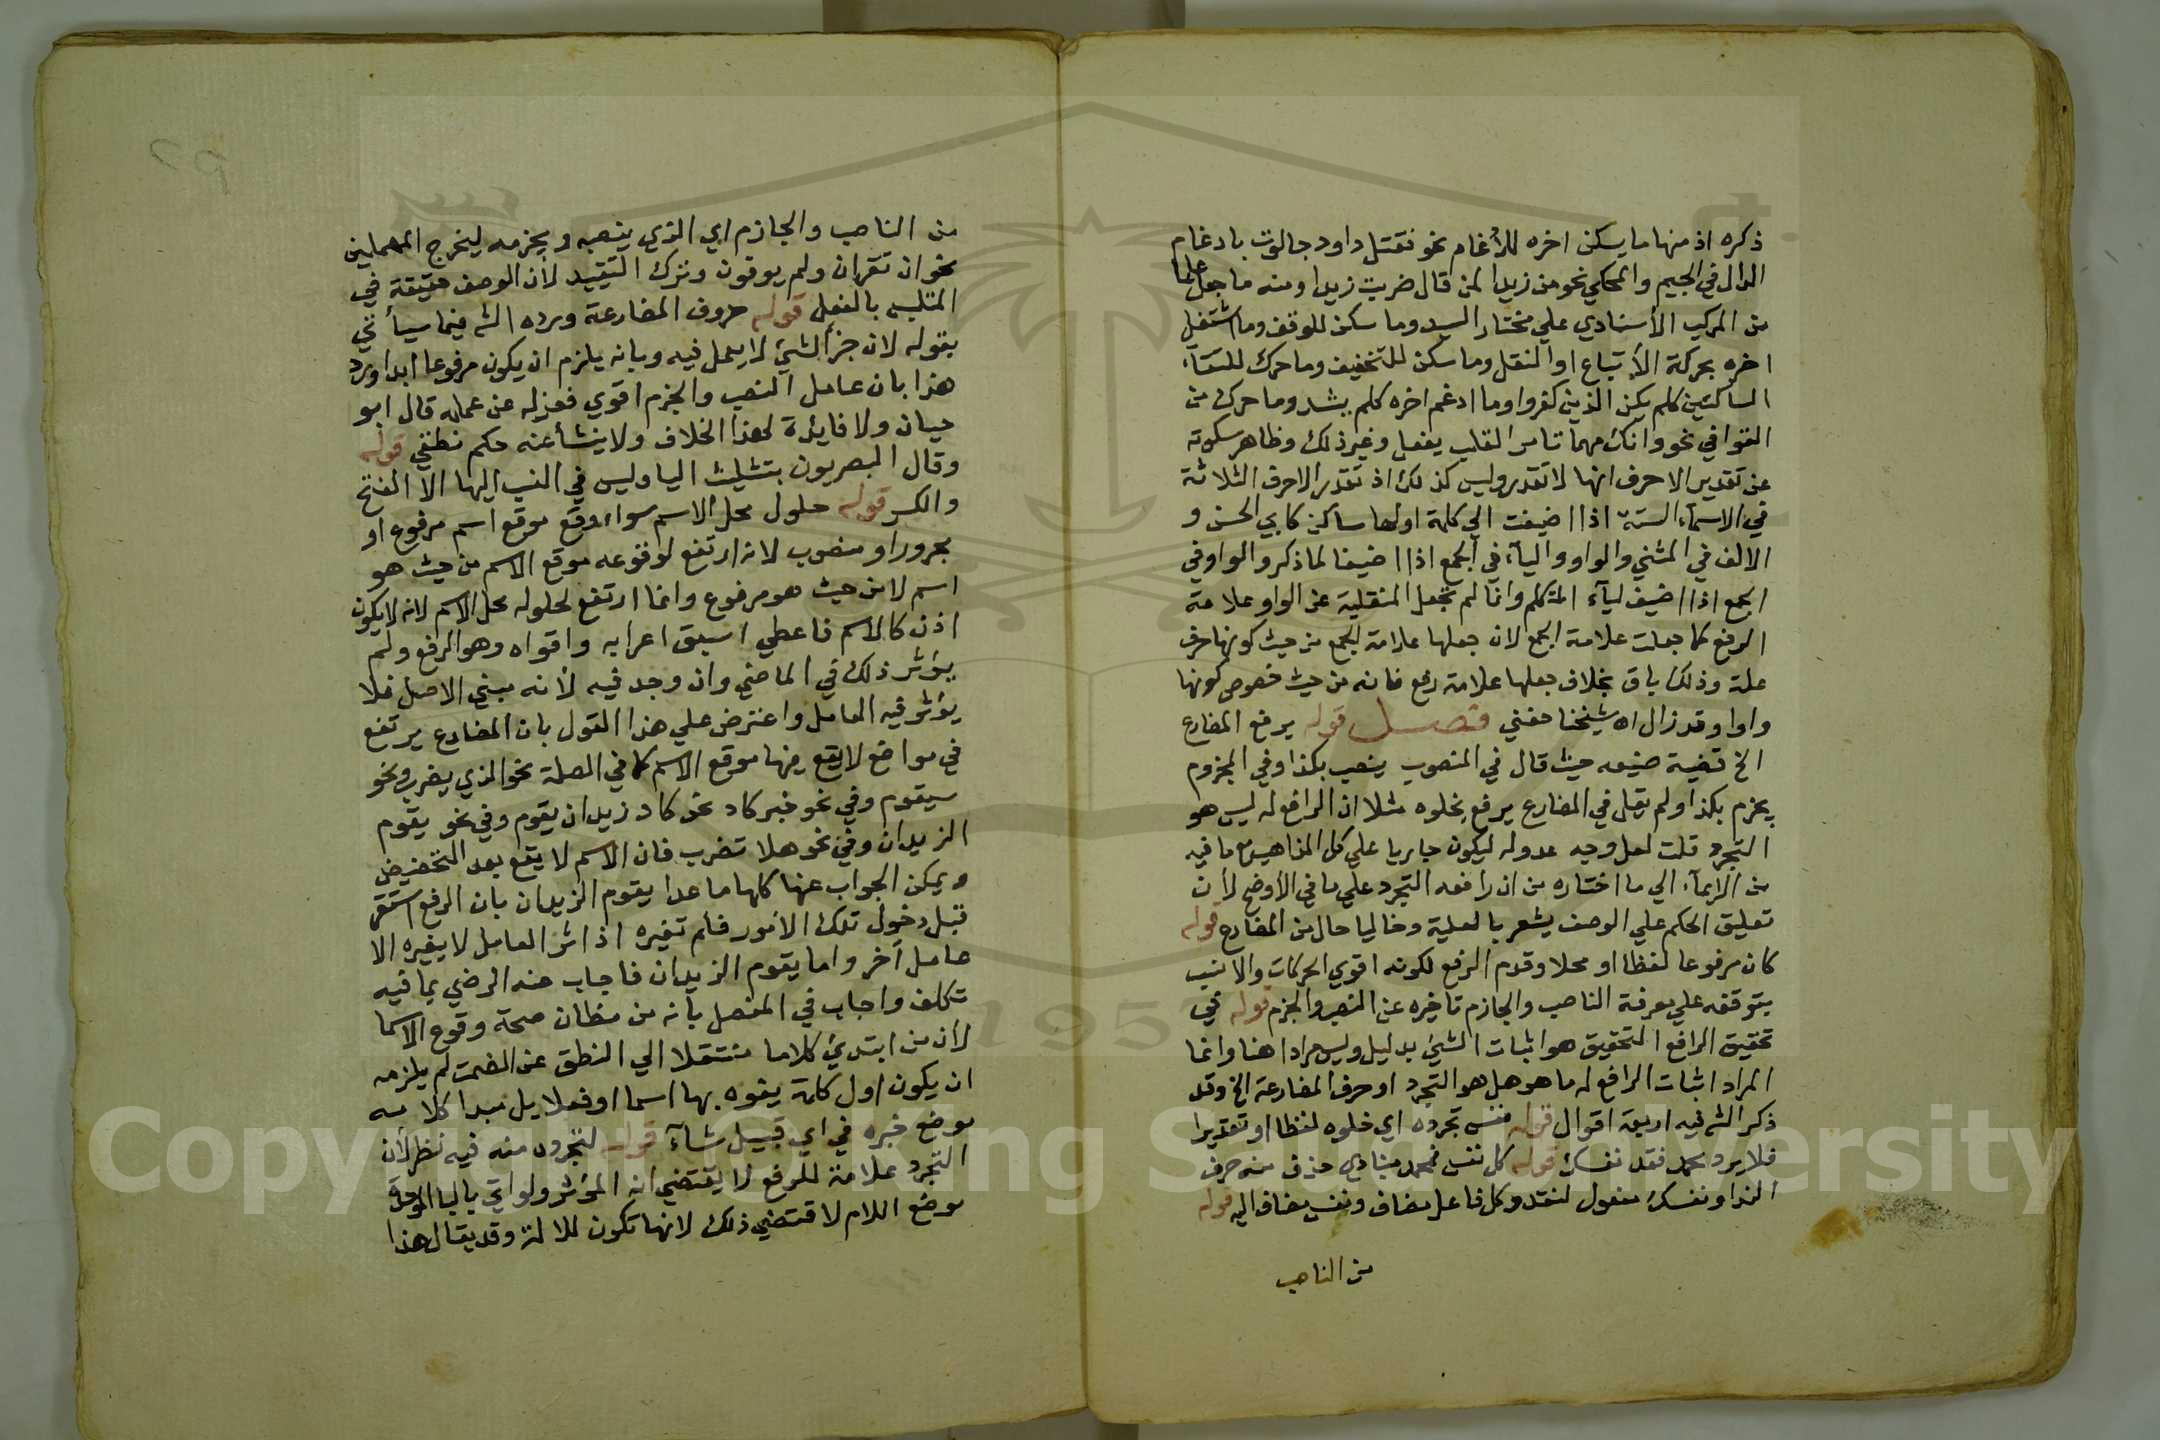 ذكره اذ منها ما يسكن اخره للادغام نحو فقتل داود جالوت بادغام
الدال في الجيم والمحكي نحو من زيدا لمن قال ضربت زيدا ومنه ما جعل علما
من المركب الأسنادي علي مختار السيد وما سكن للوقف وما اشتغل
اخره بحركة الأتباع او النقل وما سكن للتخفيف وما حرك للتقآء
الساكنين كلم يكن الذين كفروا وما ادغم اخره كلم يشد وما حرك من
القوافي نحو وانك مهما تامر القلب يفعل وغير ذلك وظاهر سكوته
عن تقدير الاحرف انها لا تقدر وليس كذلك اذ تقدر الاحرف الثلاثة
في الاسمآء الستة اذا اضيفت الي كلمة اولها ساكن كابي الحسن و
الالف في المثني والواو واليآء في الجمع اذا اضيفا لما ذكر والواو في
الجمع اذا اضيف ليآء المتكلم وانا لم تجعل المنقلبة عن الواو علامة
الرفع كما جعلت علامة الجمع لان جعلها علامة للجمع من حيث كونها حرف
علة وذلك باق بخلاف جعلها علامة رفع فانه من حيث خصوص كونها
واوا وقد زال اه شيخنا حفني فصل قوله يرفع المضارع
الخ قضية صنيعه حيث قال في المنصوب ينصب بكذا وفي المجزوم
يجزم بكذا ولم يقل في المضارع يرفع بخلوه مثلا ان الرافع له ليس هو
التجرد قلت لعل وجه عدوله ليكون جاريا علي كل المذاهب مع ما فيه
من الايمآء الي ما اختاره من ان رافعه التجرد علي ما في الأوضح لأن
تعليق الحكم علي الوصف يشعر بالعلية وخاليا حال من المضارع قوله
كان مرفوعا لفظا او محلا وقدم الرفع لكونه اقوي الحركات والانسب
بتوقفه علي معرفة الناصب والجازم تاخيره عن النصب والجزم قوله في
تحقيق الرافع التحقيق هو اثبات الشيئ بدليل وليس مرادا هنا وانما
المراد اثبات الرافع له ما هو هل هو التجرد او حرف المضارعة الخ وقد
ذكر الش فيه اربعة اقوال قوله نفس تجرده اي خلوه لفظا او تقديرا
فلا يرد محمد تفد نفسك قوله كل نفس فمحمد منادي حذف منه حرف
الندا ونفسك مفعول لتفد وكل فاعل مضاف ونفس مضاف اليه قوله
من الناصب
من الناصب والجازم اي الذي ينصبه ويجزمه ليخرج المهملين
نحو ان تقرآن ولم يوفون وترك التقييد لأن الوصف حقيقة في
المتلبس بالفعل قوله حروف المضارعة ورده الش فيما سيأتي
بقوله لان جزأ الشيئ لا يعمل فيه وبانه يلزم ان يكون مرفوعا ابدا ويرد
هذا بان عامل النصب والجزم اقوي فعزله عن عمله قال ابو
حيان ولا فايدة لهذا الخلاف ولا ينشأ عنه حكم نطقي قوله
وقال البصريون بتثليث اليا وليس في النسب اليها الا الفتح
والكسر قوله حلول محل الاسم سواء وقع موقع اسم مرفوع او
مجرور او منصوب لانه ارتفع لوقوعه موقع الاسم من حيث هو
اسم لا من حيث هو مرفوع وانما ارتفع لحلوله محل الاسم لانه لا يكون
اذن كالاسم فاعطي اسبق اعرابه واقواه وهو الرفع ولم
يؤثر ذلك في الماضي وان وجد فيه لأنه مبني الاصل فلا
يؤثر فيه العامل واعترض علي هذا القول بان المضارع يرتفع
في مواضع لا يقع فيها موقع الاسم كما في الصلة نحو الذي يضرب ونحو
سيقوم وفي نحو خبر كاد نحو كاد زيد ان يقوم وفي نحو يقوم
الزيدان وفي نحو هلا تضرب فان الاسم لا يقع بعد التحضيض
ويمكن الجواب عنها كلها ما عدا يقوم الزيدان بان الرفع استقر
قبل دخول تلك الأمور فلم تغيره اذ اثر العامل لا يغيره الا
عامل آخر واما يقوم الزيدان فاجاب عنه الرضي بما فيه
تكلف واجاب في المفصل بأنه من مظان صحة وقوع الاسما
لأن من ابتدئ كلاما منتقلا الي النطق عن الصمت لم يلزمه
ان يكون اول كلمة يفوه بها اسما او فعلا بل مبدا كلامه
موضع خبره في اي قبيل شآء قوله لتجرده منه فيه نظر لأن
التجرد علامة للرفع لا يقتضي انه المؤثر ولو اتي باليا الموحدة
موضع اللام لاقتضي ذلك لانها تكون للالة وقد يقال هذا